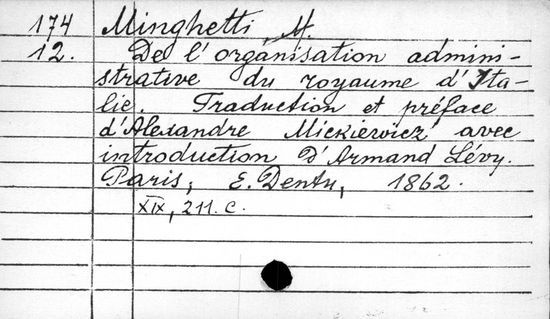 174 Minghetti, M.
12. De l'organisation admini-
strative du royaume d'Ita-
lie. Traduction et préface
d'Alexandre Mickiewicz avec
introduction d'Armand Lévy.
Paris, E. Dentu, 1862.
XIX, 211. c.